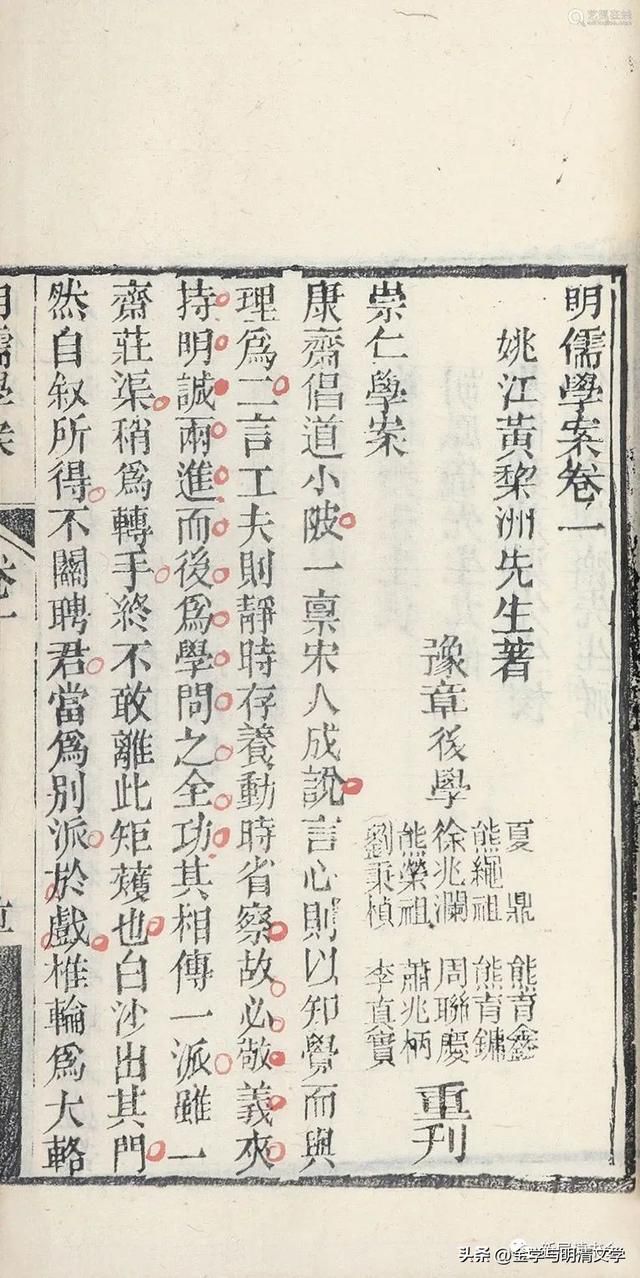 明儒學案卷一
姚江黃棃洲先生著
豫章後學
夏鼎
熊繩祖
徐兆瀾
熊榮祖
劉秉楨
熊育鑫
熊育鏞
周聯慶
蕭兆柄
李真實
重刊
崇仁學案
康齋倡道小陂一禀宋人成說言心則以知覺而與
理爲二言工夫則靜時存養動時省察故必敬義夾
持明誠兩進而後爲學問之全功其相傳一派雖一
齋莊渠稍爲轉手終不敢離此矩矱也白沙出其門
然自叙所得不關聘君當爲別派於戲椎輪爲大輅
明儒學案
卷一
头条 @金学与明清文学